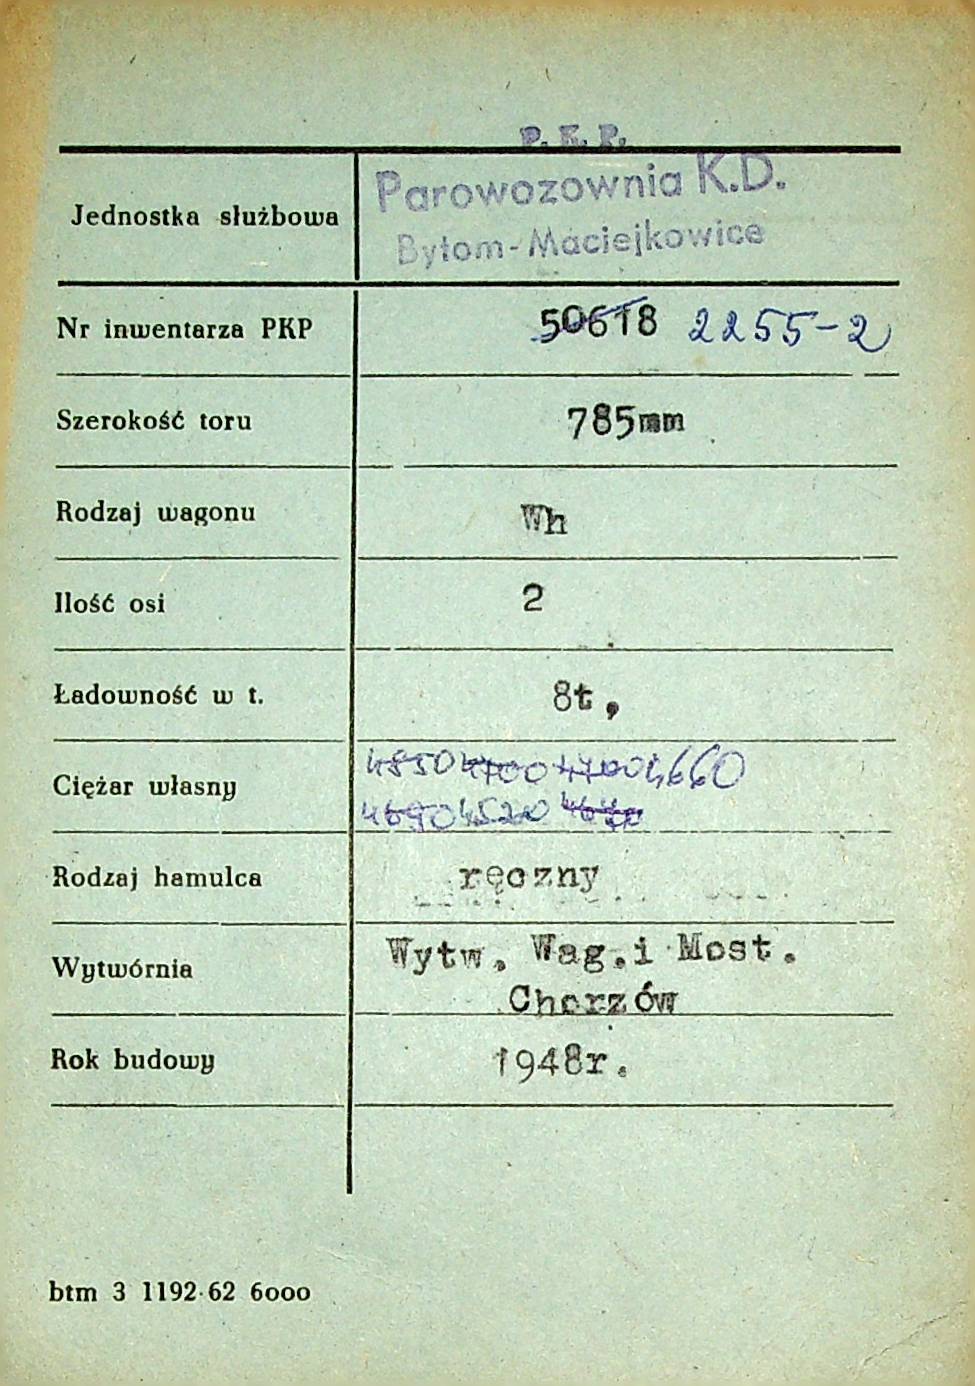 P. K. P.
Jednostka służbowa
Parowozownia K.D.
Bytom-Maciejkowice
Nr inwentarza PKP 50618 2255-2
Szerokość toru 785mm
Rodzaj wagonu Wh
Ilość osi 2
Ładowność w t. 8t,
4850 4700 4700 4660
Ciężar własny
4690 4520
Rodzaj hamulca ręczny
Wytw. Wag. i Most.
Wytwórnia
Chorzów
Rok budowy 1948r.
btm 3 1192·62 6000